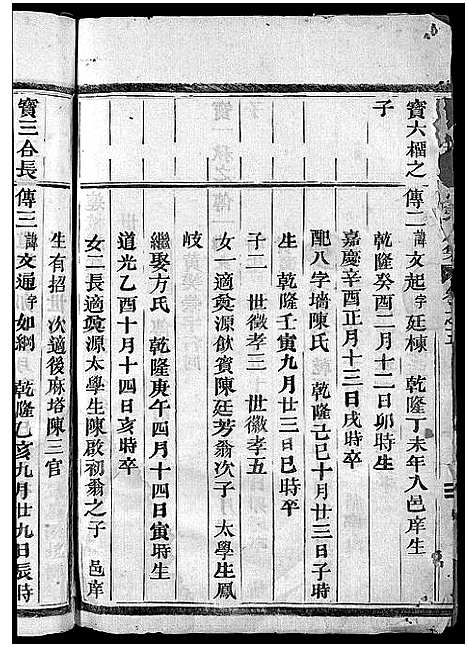 寶六榴之子
傳二諱文起字廷棟 乾隆丁未年入邑庠生
乾隆癸酉二月十二日卯時生
嘉慶辛酉正月十三日戌時卒
配八字墻陳氏 乾隆己巳十月廿三日子時
生 乾隆壬寅九月廿三日巳時卒
子二 世徽孝三 世徽孝五
女一適奠源飲賓陳廷芳翁次子 太學生鳳
岐
繼娶方氏 乾隆庚午四月十四日寅時生
道光乙酉十月十四日亥時卒
女二長適奠源太學生陳啟初翁之子 邑庠
生有招 次適後麻塔陳三官
寶三合長
傳三諱文通字如綱 乾隆己亥九月廿九日辰時